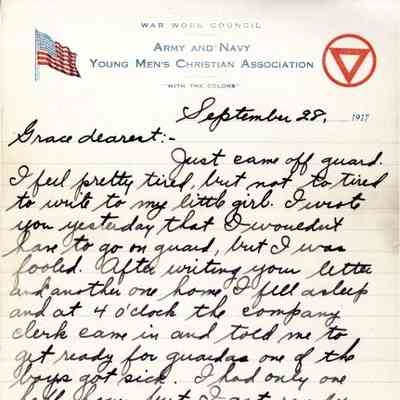 WAR WORK COUNCIL
ARMY AND NAVY
YOUNG MEN'S CHRISTIAN ASSOCIATION
"WITH THE COLORS"
September 28, 1917
Grace dearest:-
Just came off guard.
I feel pretty tired, but not to tired
to write to my little girl. I wrote
you yesterday that I wouldn't
have to go on guard, but I was
fooled. After writing your letter
and another one home I fell asleep
and at 4 o'clock the company
clerk came in and told me to
get ready for guard as one of the
boys got sick. I had only one
half hour but I got ready